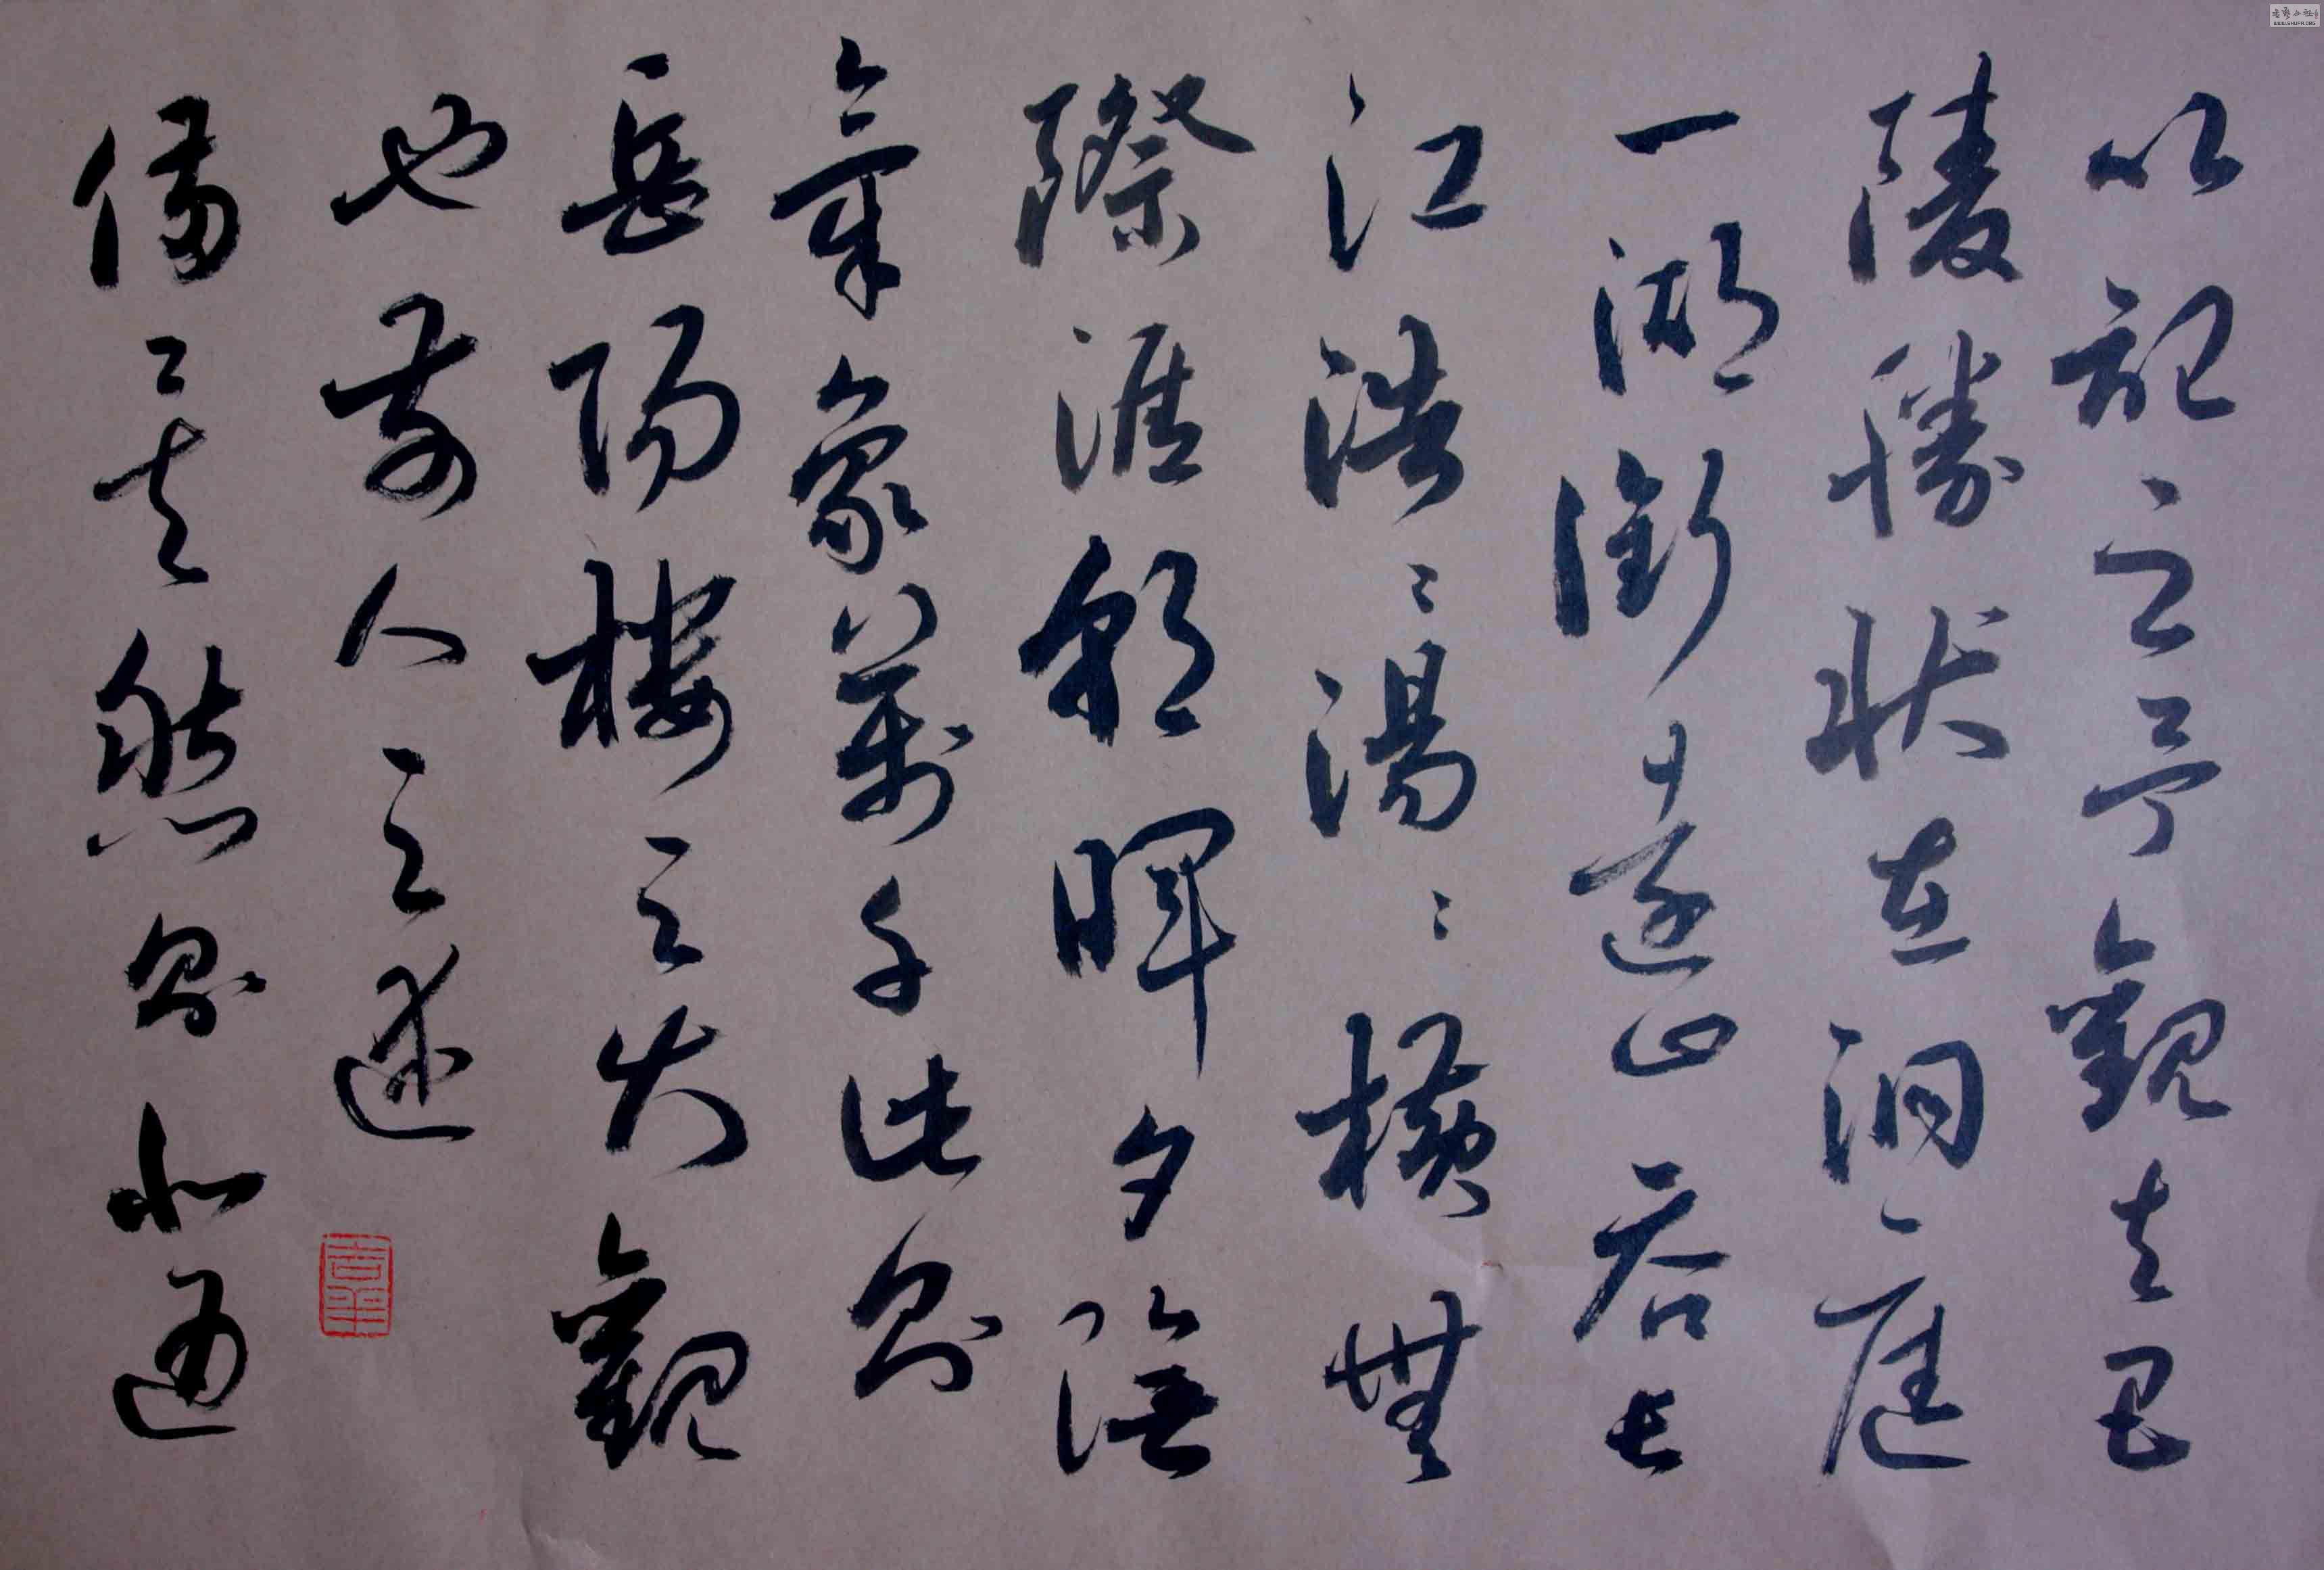 以記之予觀夫巴
陵勝狀在洞庭
一湖銜遠山吞長
江浩〻湯〻橫無
際涯朝暉夕陰
氣象萬千此則
岳陽樓之大觀
也前人之述
備矣然則北通
WWW.SHUFA.ORG